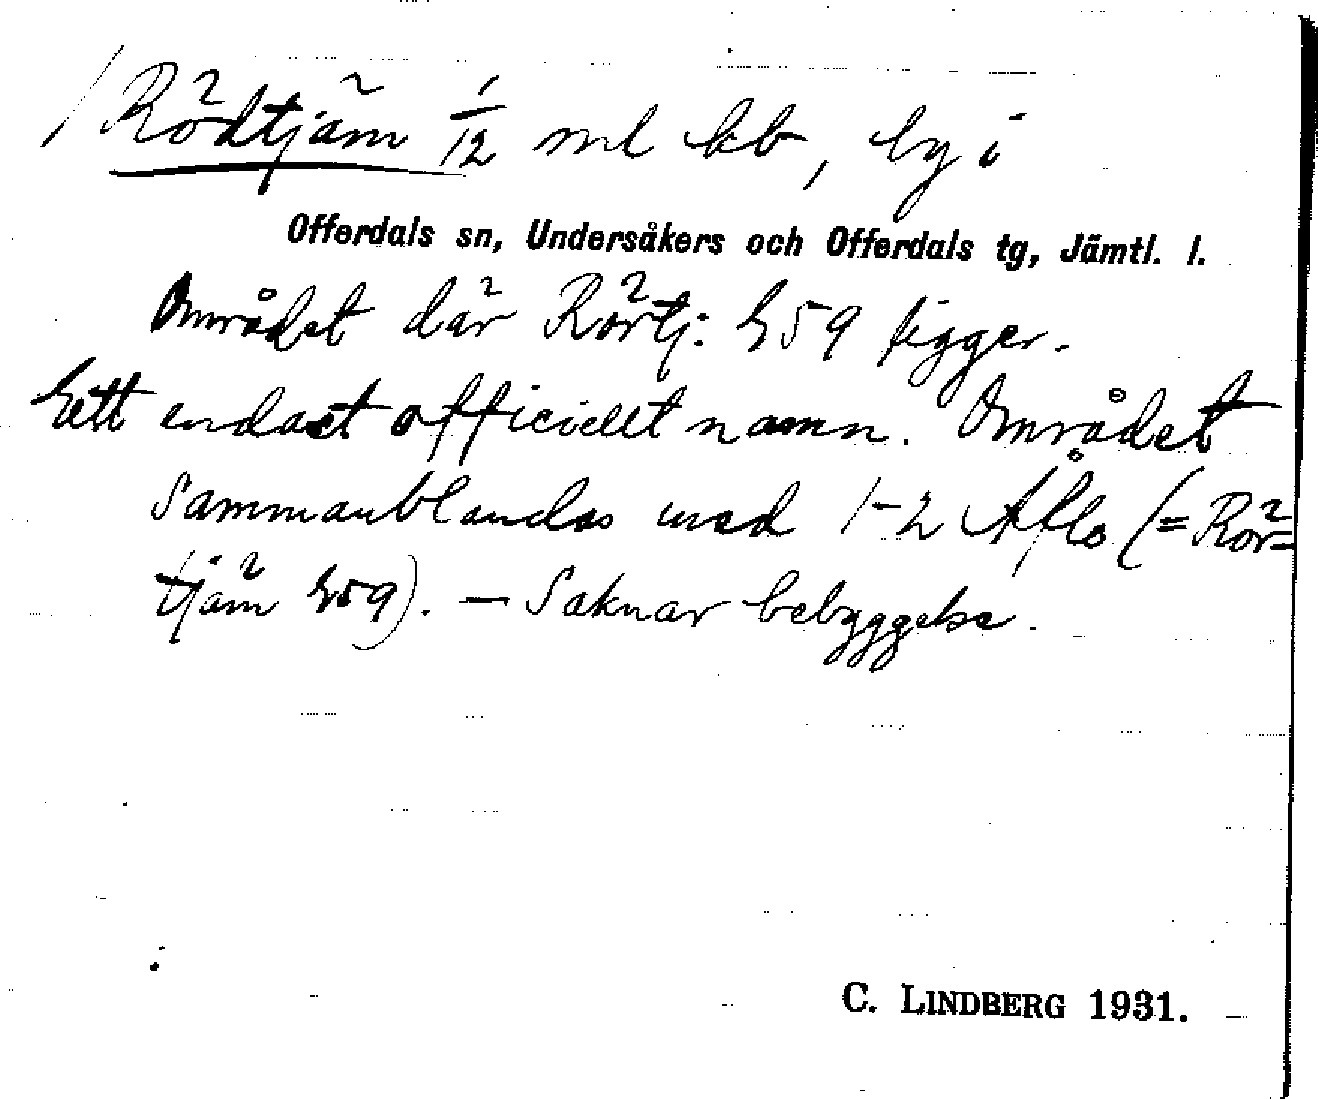 / Rödtjärn 1/12 ml kb, by i
Offerdals sn, Undersåkers och Offerdals tg, Jämtl. l.
Området där Rörtj: 59 ligger.
Ett endast officiellt namn. Området
sammanblandas med 1-2 Åflo (= Rör=
tjärn 59). — Saknar bebyggelse.
C. LINDBERG 1931.